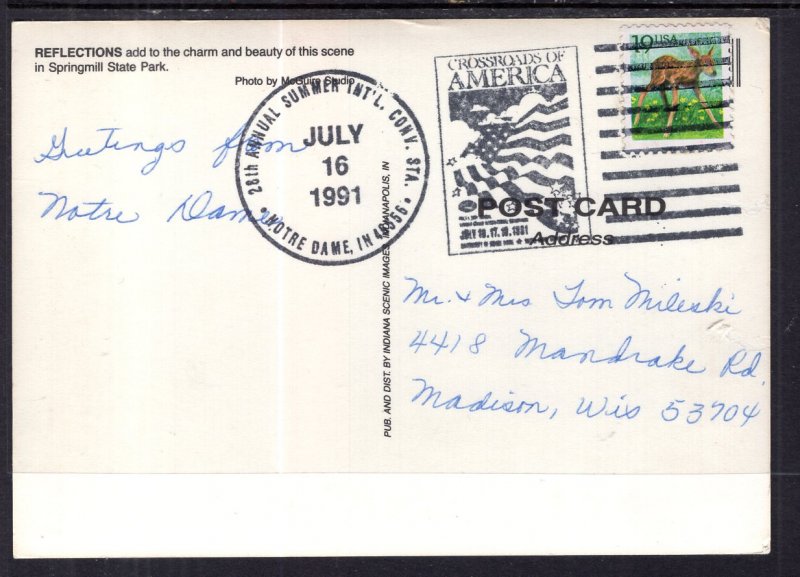 REFLECTIONS add to the charm and beauty of this scene
in Springmill State Park.
Photo by McGuire Studio
Greetings from
Notre Dame
28th ANNUAL SUMMER INT'L. CONV. STA.
JULY
16
1991
NOTRE DAME, IN 46556
CROSSROADS OF
AMERICA
JULY 16, 17, 18, 1991
19 USA
POST CARD
Address
PUB. AND DIST. BY INDIANA SCENIC IMAGES, INDIANAPOLIS, IN
Mr. + Mrs Tom Mileski
4418 Mandrake Rd.
Madison, Wis 53704